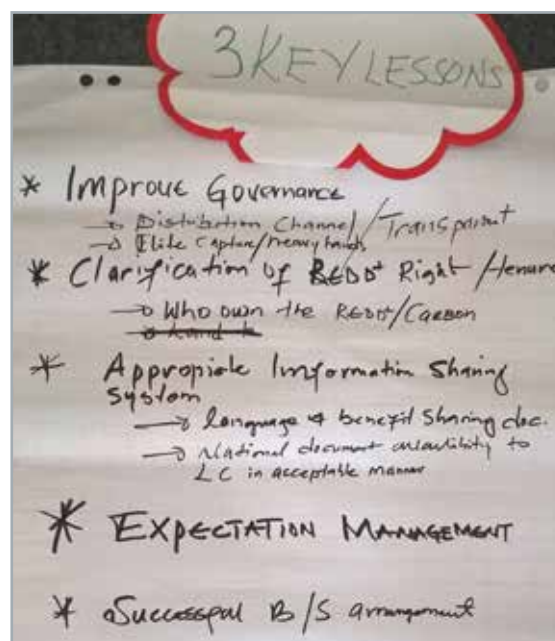 3 KEY LESSONS
* Improve Governance
→ Distribution Channel / Transparent
→ Elite Capture/heavy hands
* Clarification of REDD+ Right / tenure
→ Who own the REDD+/Carbon
* Appropiate Information Sharing
System
→ language & benefit sharing doc.
→ National document availibility to
LC in acceptable manner
* EXPECTATION MANAGEMENT
* Successful B/S arrangement